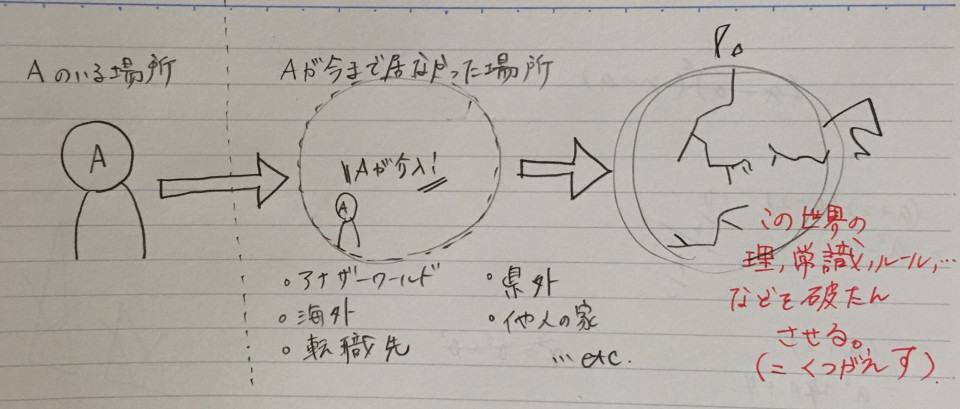 Aのいる場所
Aが今まで居なかった場所
A
"Aが介入!
A
・アナザーワールド
・海外
・転職先
・県外
・他人の家
…etc.
この世界の
理,常識,ルール,…
などを破たん
させる。
(=くつがえす)